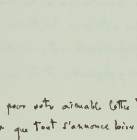 pour votre aimable lettre
que tout s'annonce bien